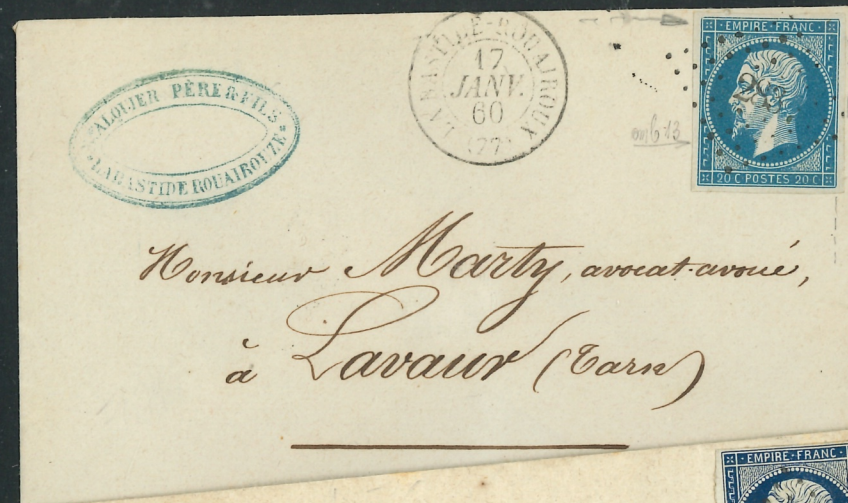 ALQUIER PÈRE & FILS
LABASTIDE ROUAIROUZE
LA BASTILE-ROUAIROUX
17
JANV.
60
(77)
EMPIRE FRANC
20 C POSTES 20 C
Monsieur Marty, avocat-avoué,
à Lavaur (Tarn)
EMPIRE FRANC